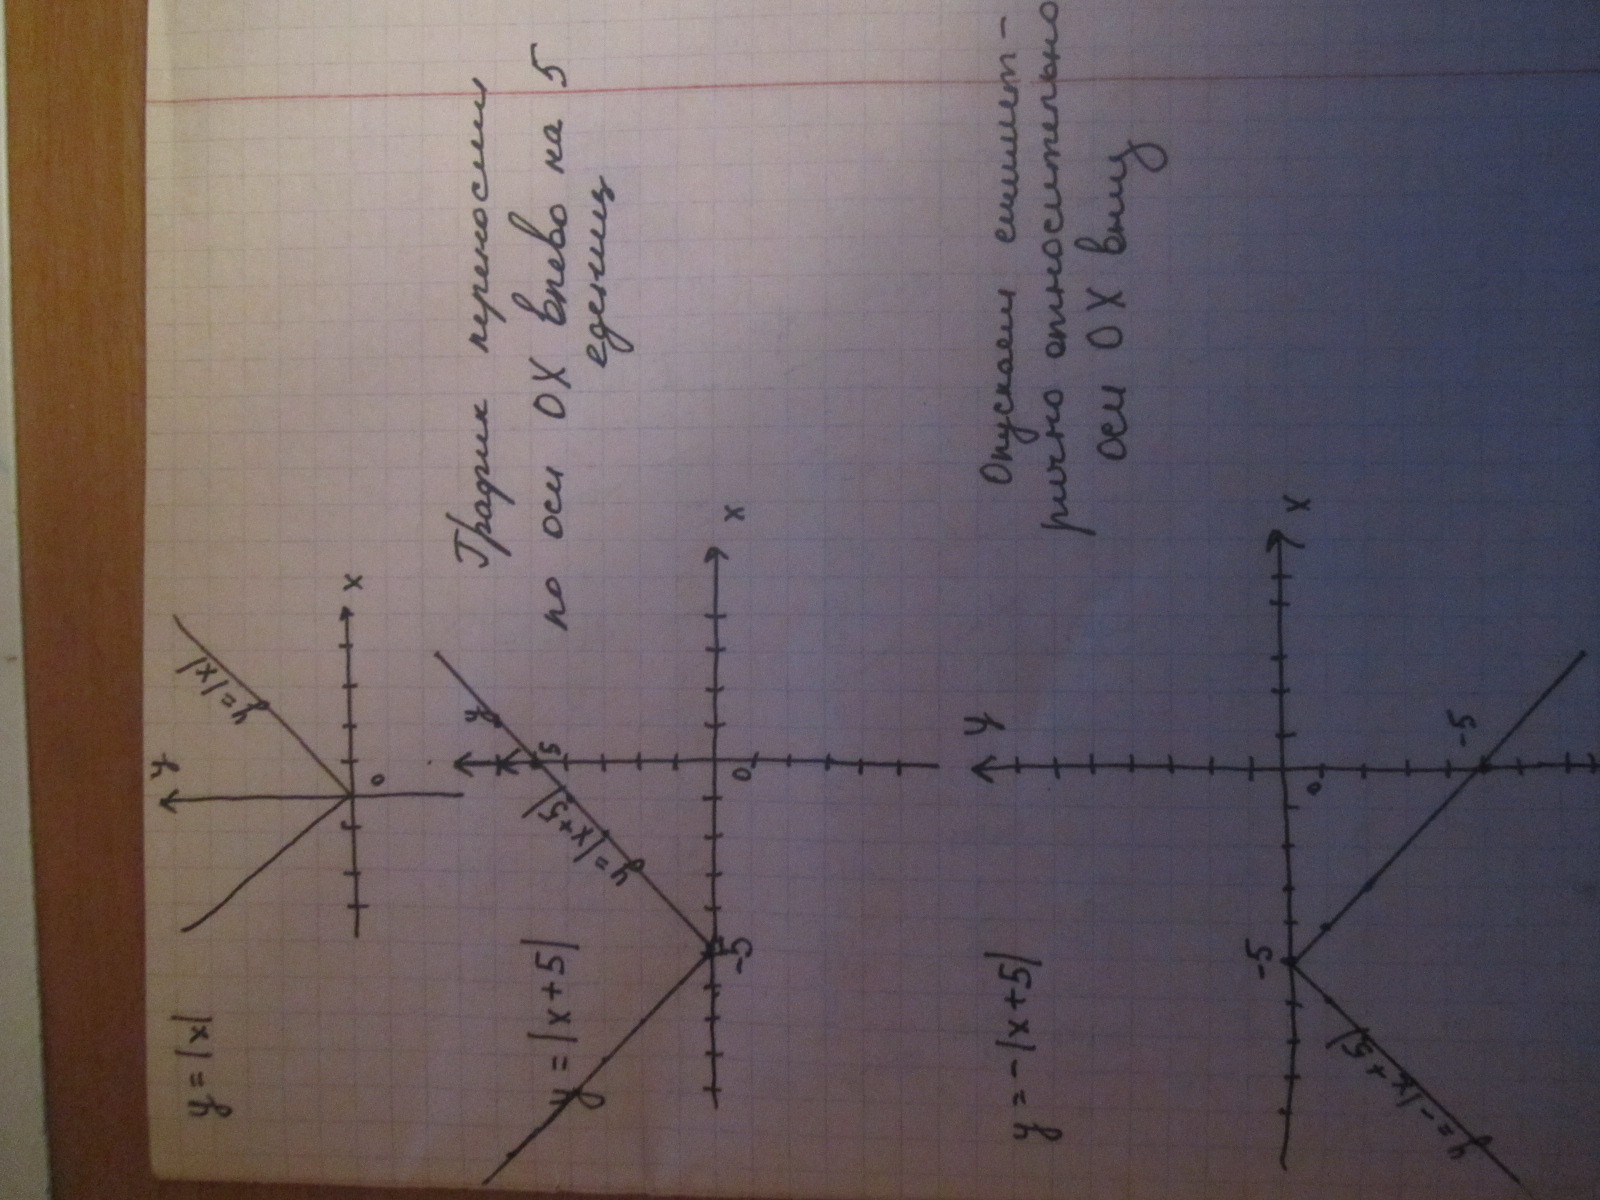 y = |x|
y
y=|x|
x
0
y = |x+5|
y
5
y=|x+5|
x
0
-5
График переносим
по оси OX влево на 5
единиц
y = -|x+5|
y
x
0
-5
-5
y=-|x+5|
Опускаем симмет-
рично относительно
оси OX вниз